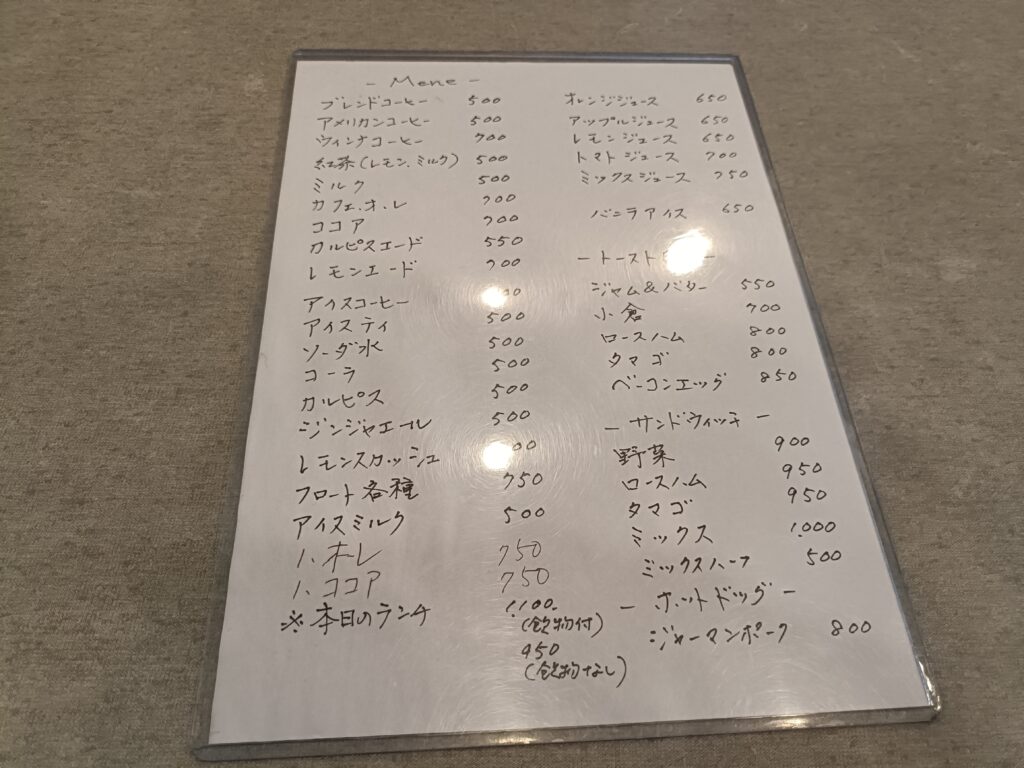 - Mene -
ブレンドコーヒー 500
アメリカンコーヒー 500
ウィンナコーヒー 700
紅茶(レモン.ミルク) 500
ミルク 500
カフェ.オ.レ 700
ココア 700
カルピスエード 550
レモンエード 700
アイスコーヒー
アイスティ 500
ソーダ水 500
コーラ 500
カルピス 500
ジンジャエール 500
レモンスカッシュ
フロート各種 750
アイスミルク 500
1.オーレ 750
1.ココア 750
※本日のランチ 1.100
(飲物付)
950
(飲物なし)
オレンジジュース 650
アップルジュース 650
レモンジュース 650
トマトジュース 700
ミックスジュース 750
バニラアイス 650
- トースト -
ジャム&バター 550
小倉 700
ロースハム 800
タマゴ 800
ベーコンエッグ 850
- サンドウィッチ -
野菜 900
ロースハム 950
タマゴ 950
ミックス 1.000
ミックスハーフ 500
- ホットドッグ -
ジャーマンポーク 800